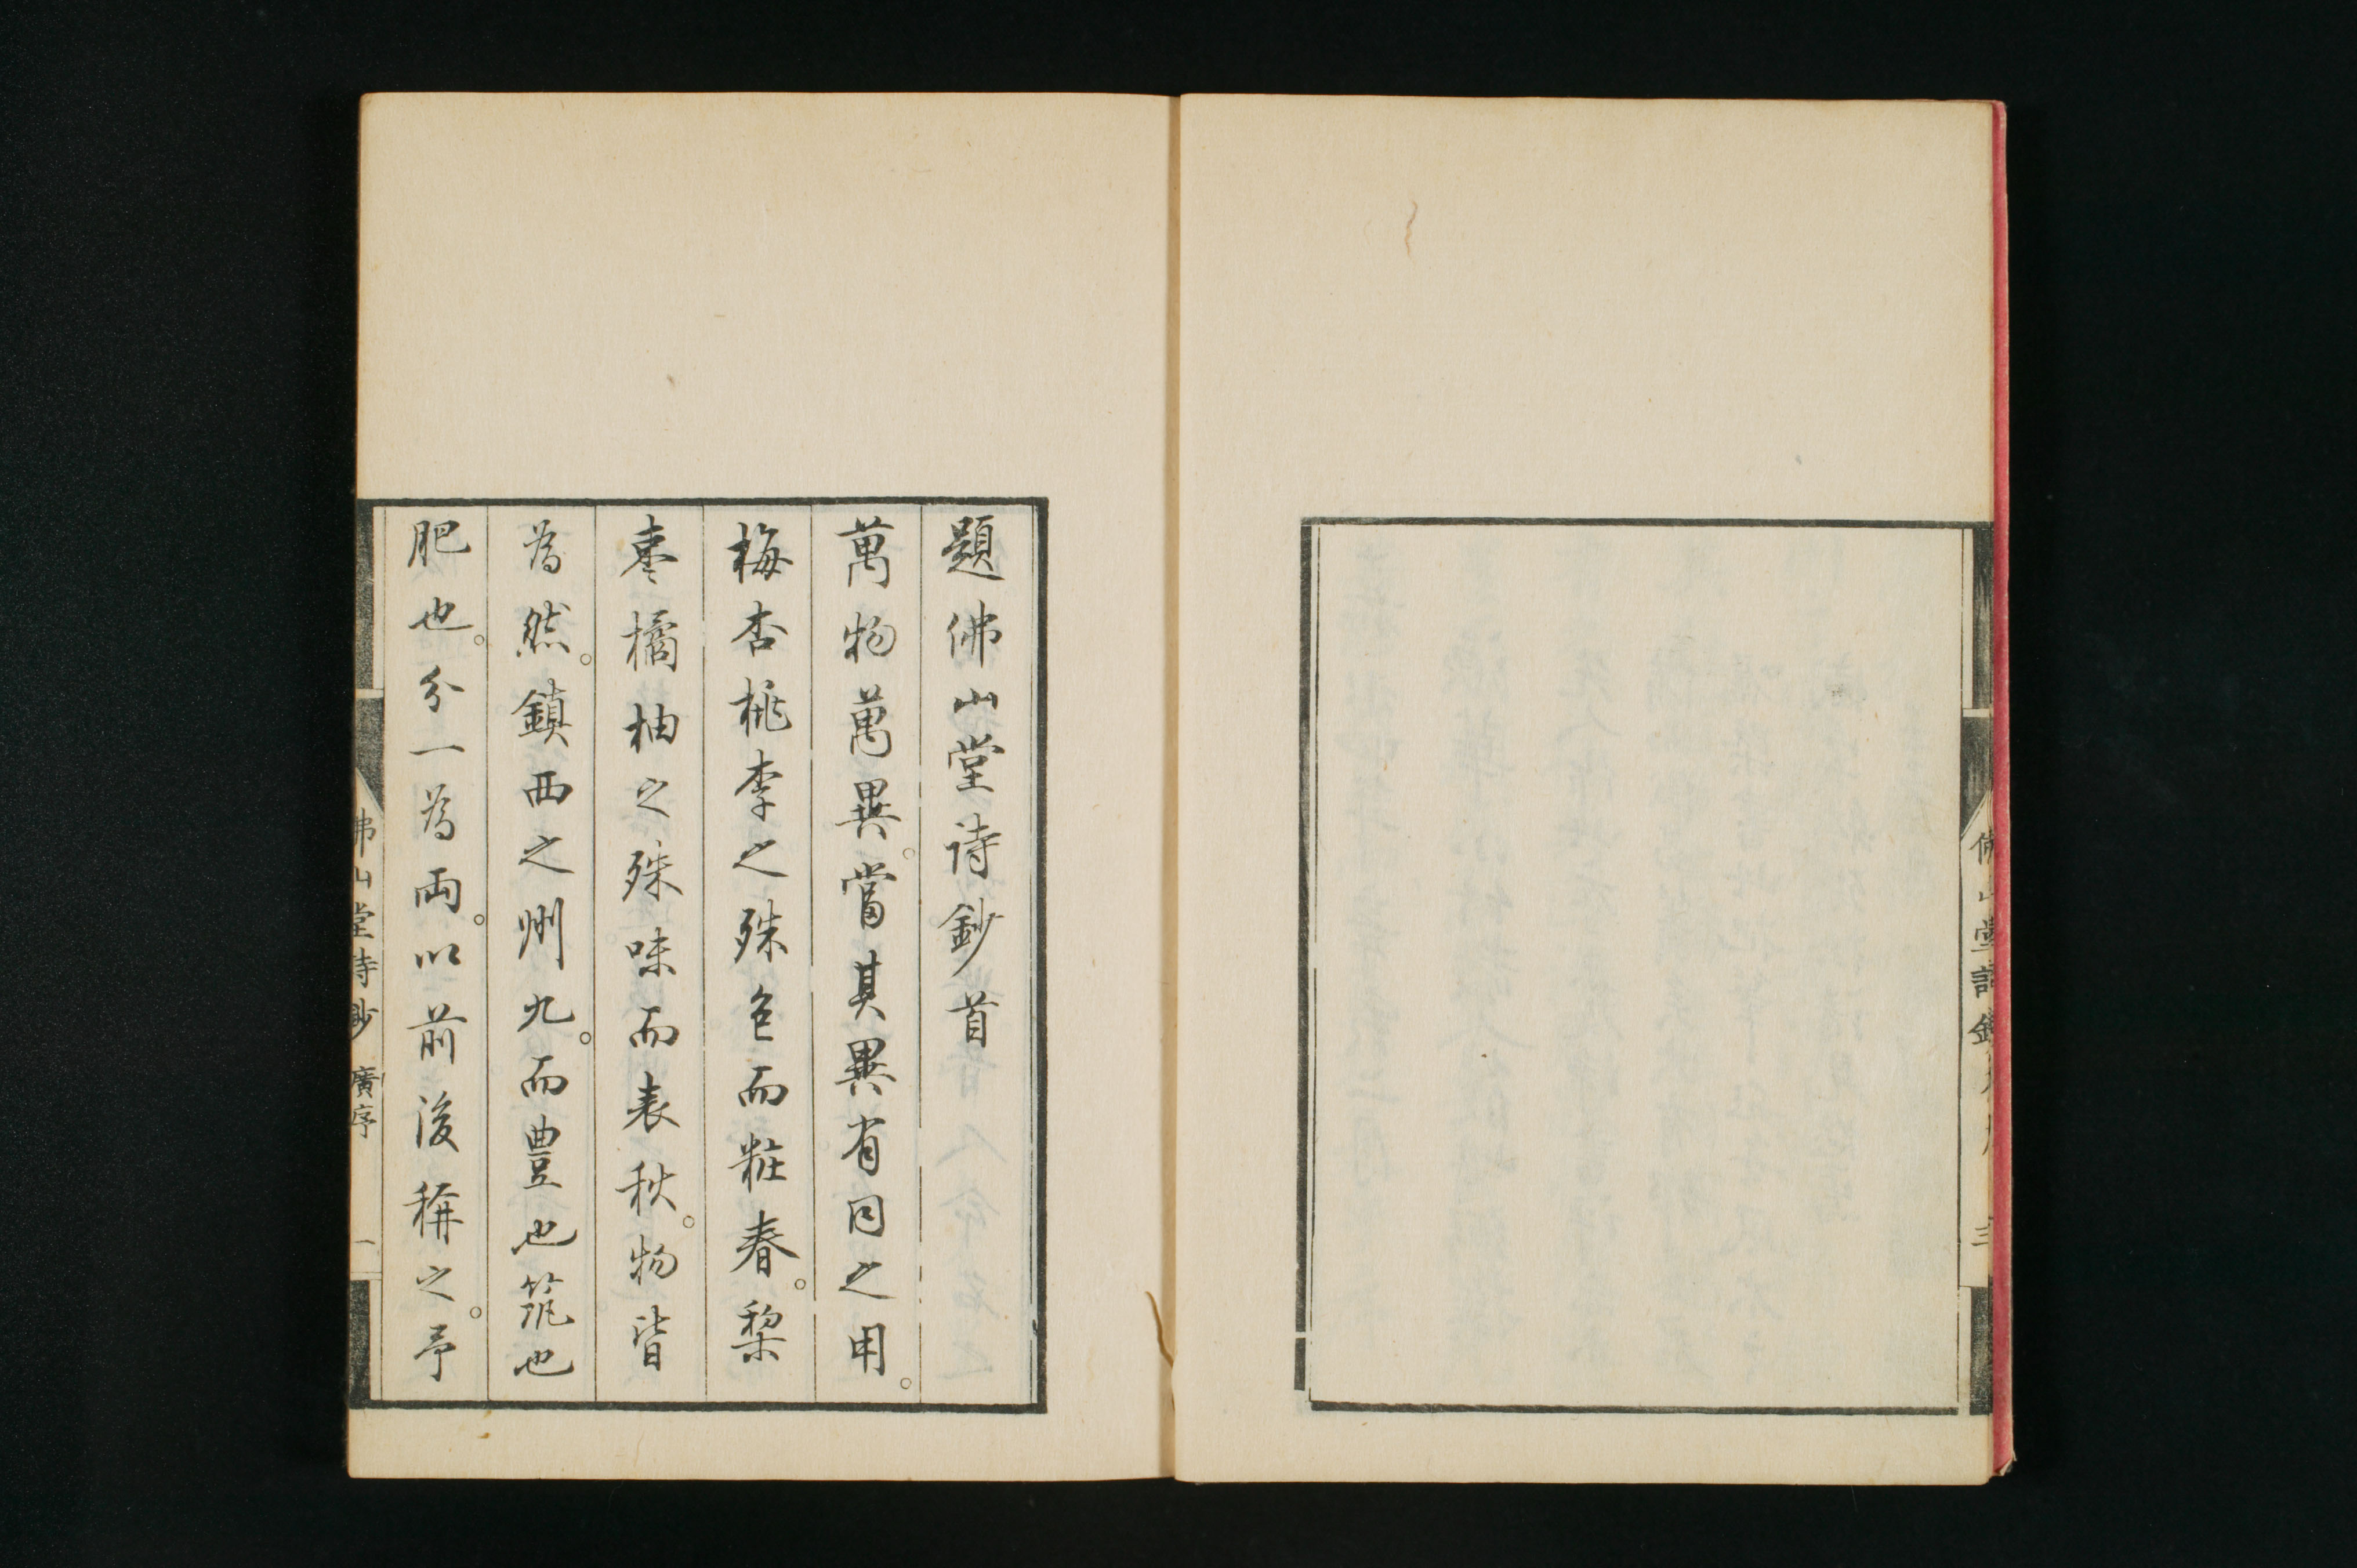 題佛山堂詩鈔首
萬物萬異。當其異有同之用。
梅杏桃李之殊色而粧春。梨
棗橘柚之殊味而表秋。物皆
為然。鎮西之州九。而豊也筑也
肥也。分一為両。以前後稱之。予
佛山堂詩鈔 廣序 一
佛山堂詩鈔 三